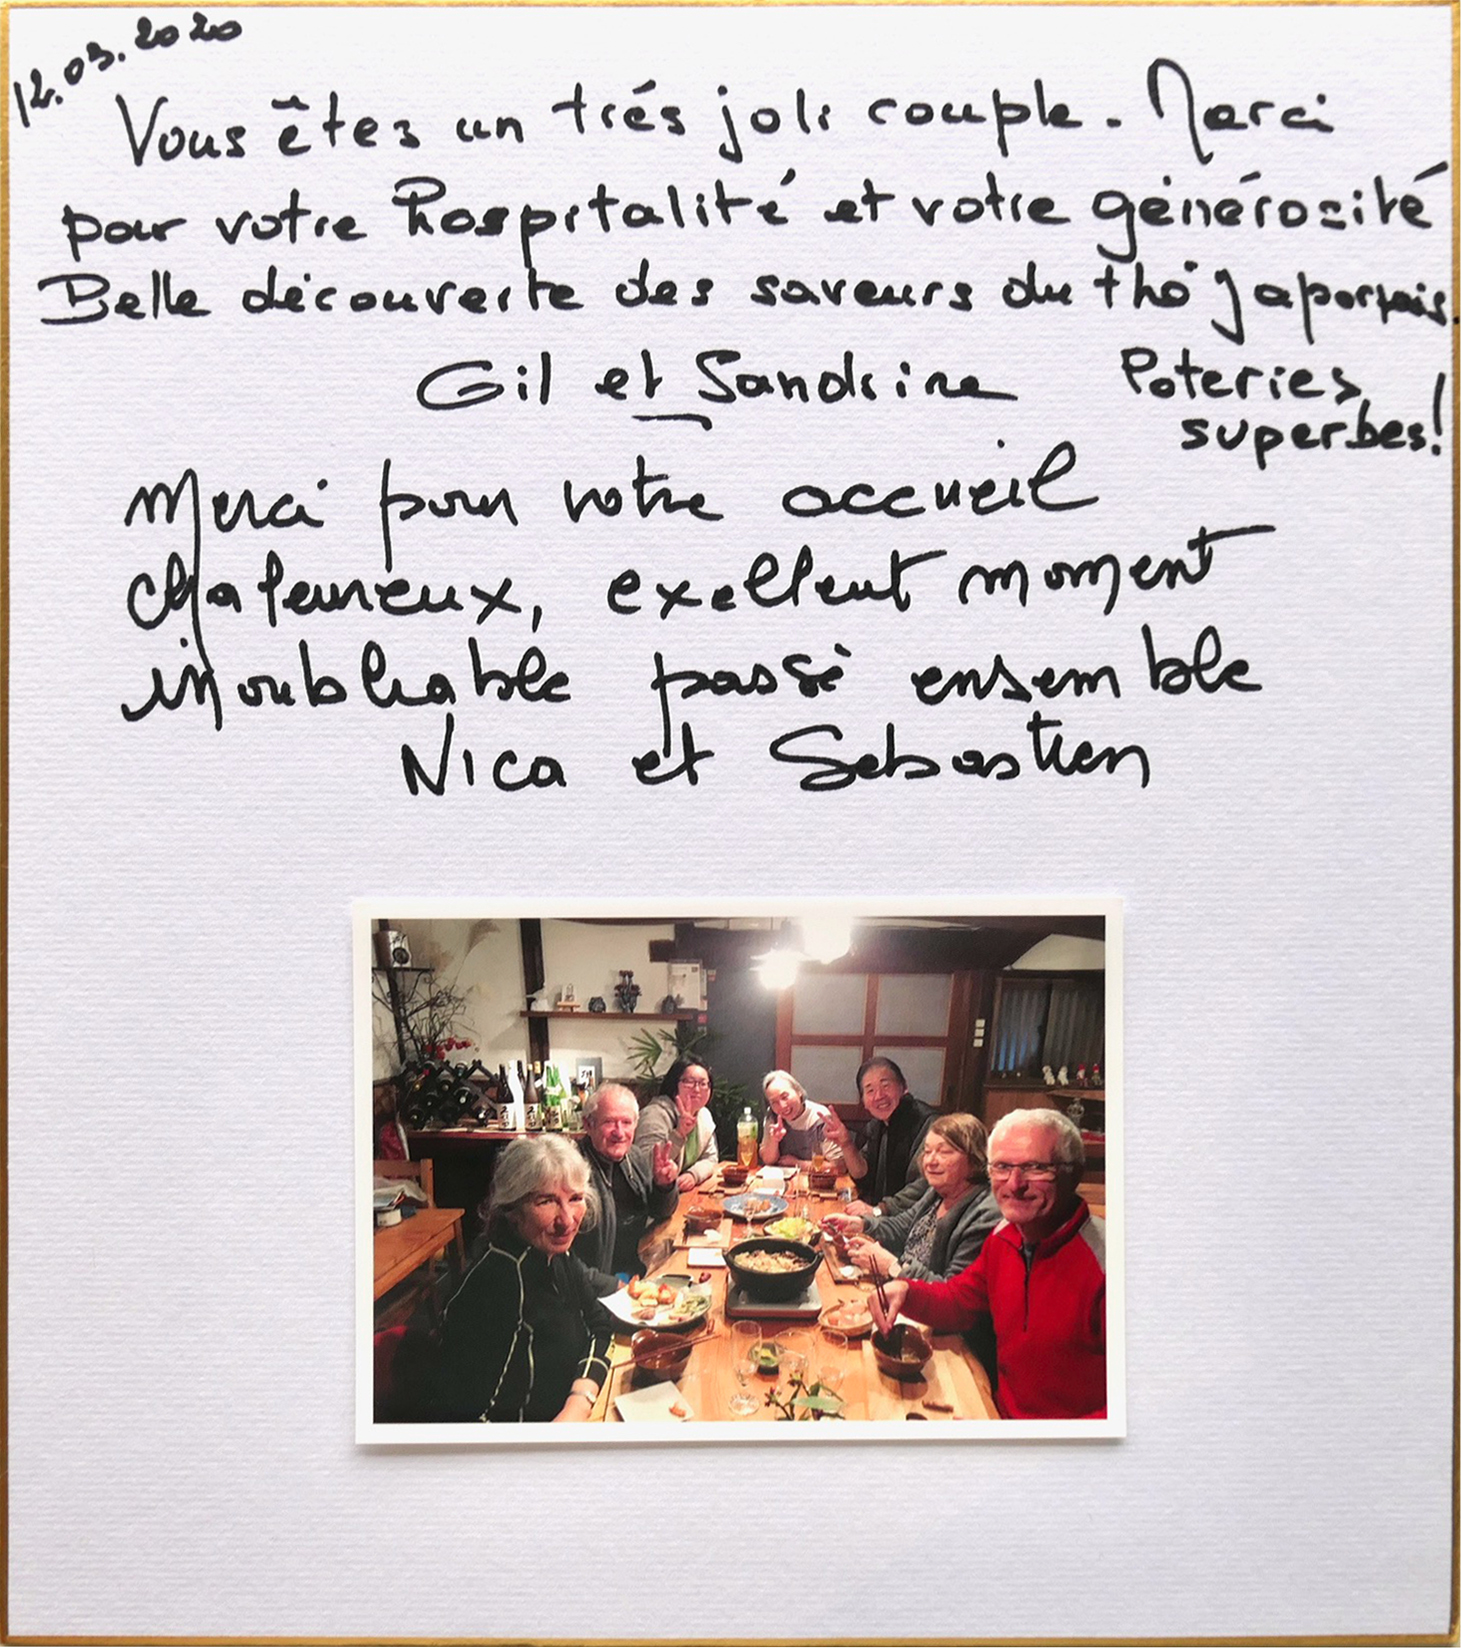 12.03.2020
Vous êtes un trés joli couple. Merci
pour votre hospitalité et votre générosité
Belle découverte des saveurs du thé japonais.
Gil et Sandrine
Poteries
superbes!
Merci pour votre accueil
chaleureux, exellent moment
inoubliable passé ensemble
Nica et Sebastien